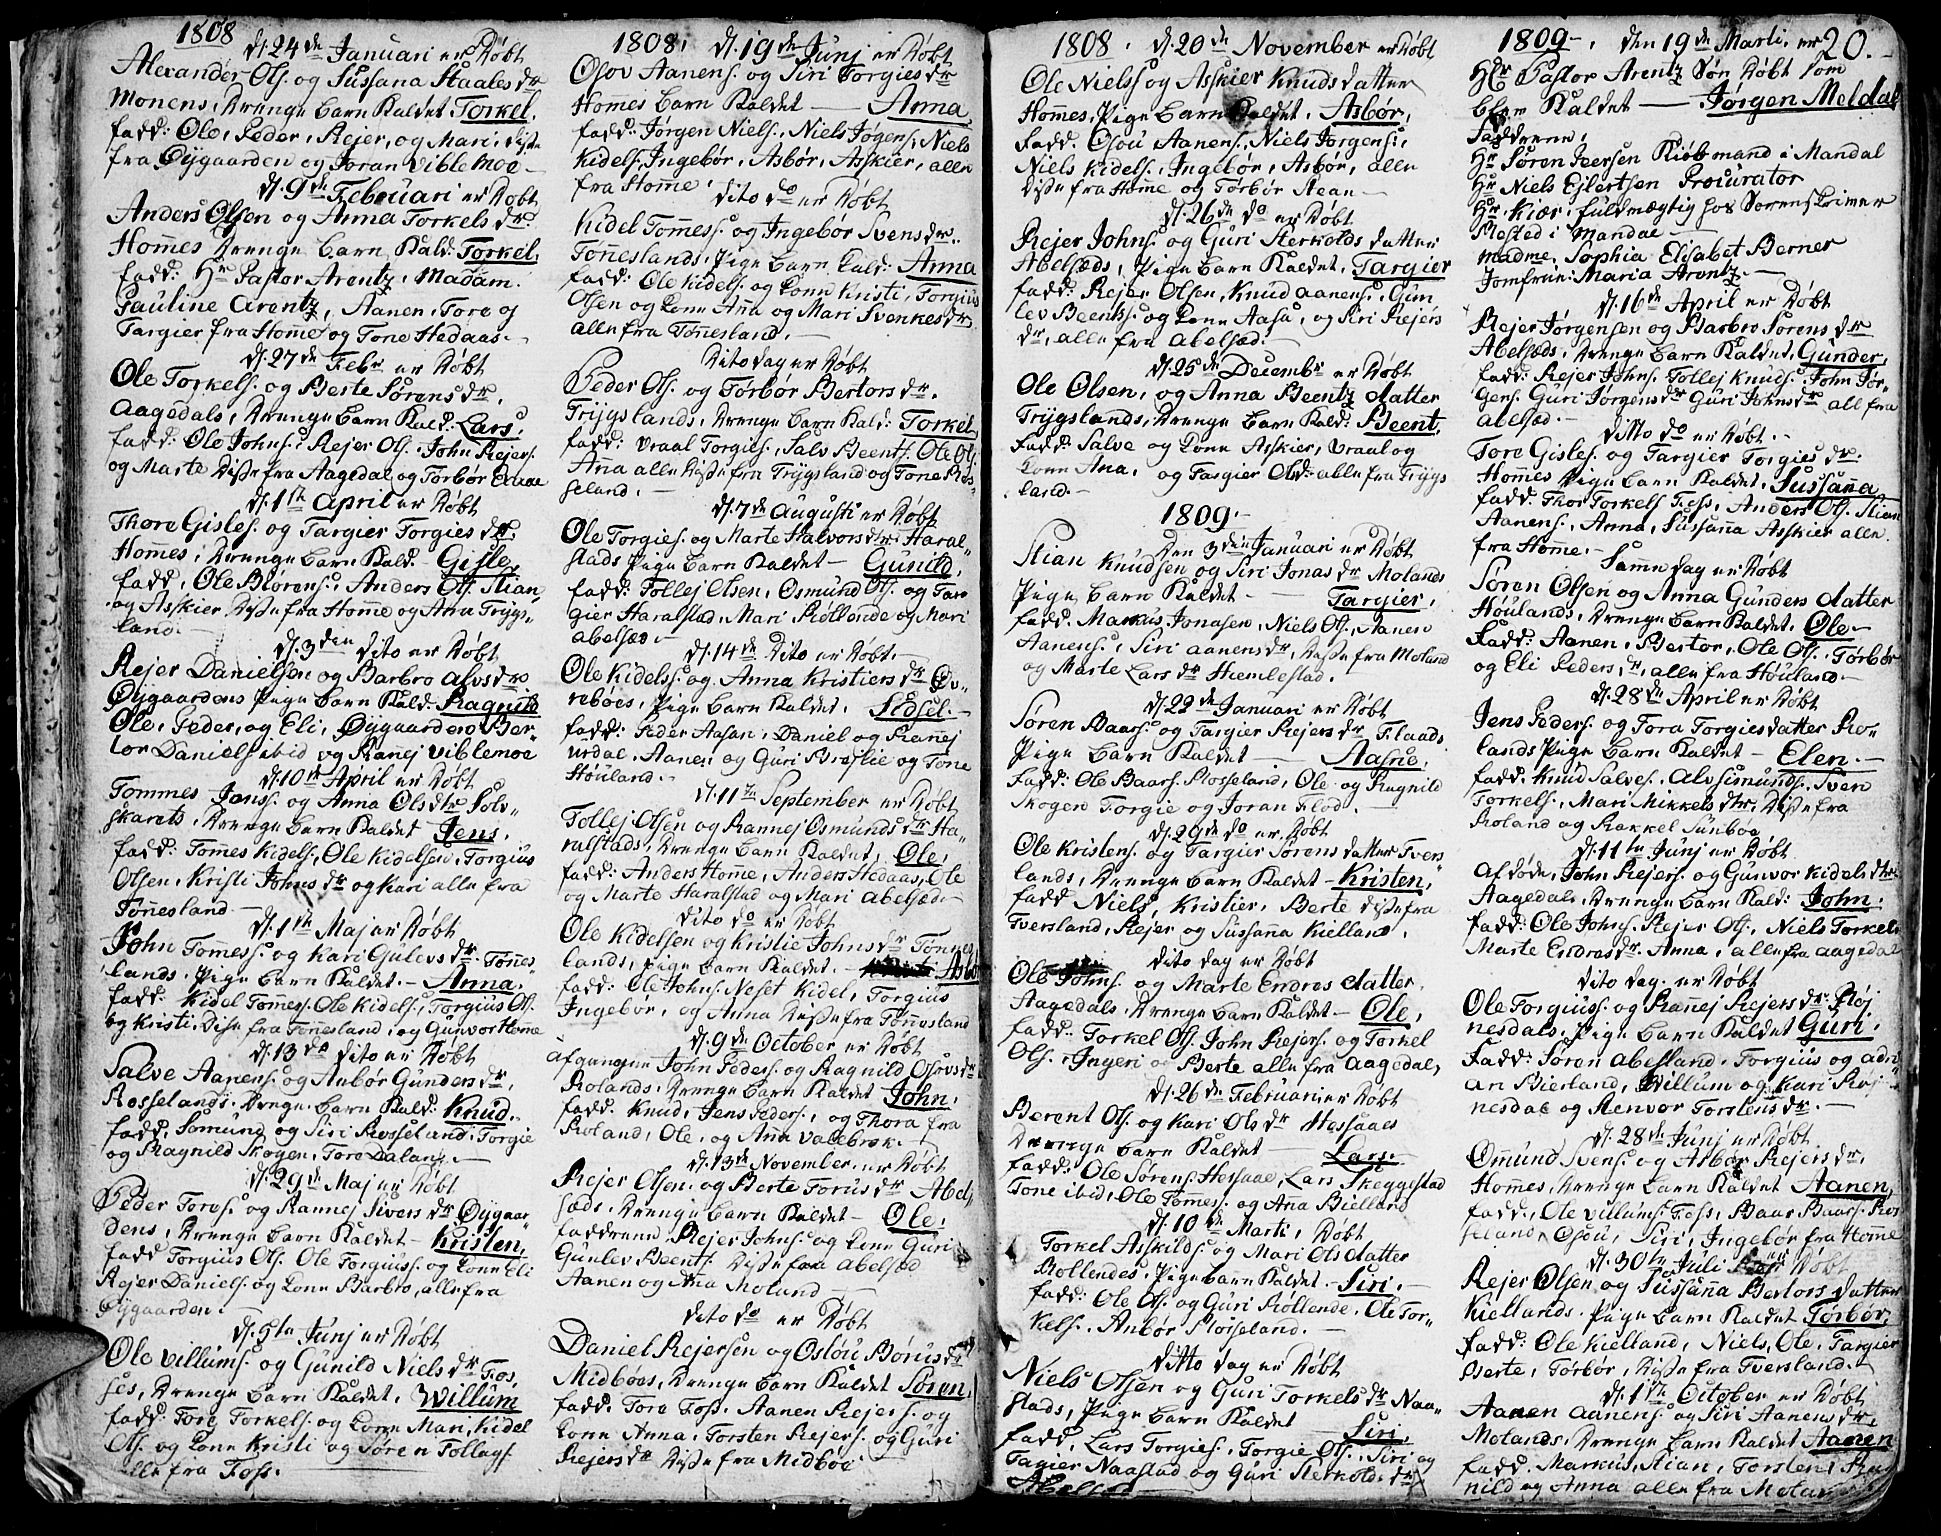 1808
d. 24de Januari er Døbt
Alexander Ols. og Sussana Staalesdr
Monens, Drenge barn Kaldet Torkel.
fadd: Ole, Peder, Rejer, og Mari, disse
fra Øygaarden og Joran Viblemoe
d. 9de Februari er Døbt
Anders Olsen og Anna Torkelsdr
Hommes Drenge barn Kald: Torkel.
fadd: Hr Pastor Arentz, Madam
Pauline Arentz, Aanen, Tore og
Targier fra Homme og Tone Hedaas.
d. 27de Febr er Døbt
Ole Torkels. og Berte Sørensdr.
Aagedals, Drenge barn Kald: Lars.
fadd: Ole Johns. Rejer Ols. John Rejers.
og Marte disse fra Aagedal og Torbør
d. 1ste April er Døbt
Thore Gisles. og Targier Torgiesdr.
Hommes, Drenge barn Kald. Gisle,
fadd. Ole Biørens. Anders Ols. Stian
og Asskier, disse fra Homme og Ana Trygs-
land.
d. 3den dito er Døbt
Rejer Danielsen og Barbro Alvsdr
Øygaardens Pige barn Kald. Ragnild
Ole, Peder, og Eli, Øygaarden, Ber-
tor Daniels ibid og Ranej Viblemoe
d. 10de April er Døbt
Tommes Jenss. og Anna Olsdtr Solv-
skarets, Drenge barn Kaldet Jens.
fadd: Tommes Kidels. Ole Kidelsen, Torgius
Olsen, Kristi Johnsdr og Kari alle fra
Tønnesland.
d. 1ste Maj er Døbt
John Tommess. og Kari Gulevsdr. Tønes-
lands, Pige barn Kaldet. Anna.
fadd. Kidel Tommes. Ole Kidels. Torgius Ols.
og Kristi, disse fra Tønnesland, og Gunvor Home
d. 13de dito er Døbt
Salve Aanens. og Anbør Gundersdr.
Rosselands, Drenge barn Kald: Knud.
fadd. Somund og Siri Rosseland, Torgie
og Ragnild Skogen, Tore Dalane.
d. 29de Maj er Døbt
Peder Tores. og Rannej Siversdr Øygaar-
dens, Drenge barn Kaldet Kristen,
fadd Torgius Ols. Ole Torgiuss. og Kone Eli
Rejer Daniels. og Kone Barbro, alle fra
Øygaarden.
d. 5te Junj er Døbt
Ole Villums. og Gunild Nielsdr Fos-
ses, Drenge barn Kaldet, Willum
fadd: Tore Torkels. og Kone Mari, Kidel
Ols. og Kone Kristi og Søren Tollags.
alle fra Foss.
1808, d. 19de Junj er Døbt
Osov Aanens. og Siri Torgiesdr
Hommes barn Kaldet Anna,
fadd: Jørgen Niels. Niels Jørgens. Niels
Kidels. Ingebør, Asbør, Asskier, alle
fra Homme.
dito do er Døbt
Kidel Tommess. og Ingebør Svensdr.
Tønneslands, Pige barn Kald: Anna
fadd: Ole Kidels. og Kone Kristi, Torgius
Olsen og Kone Ana og Mari Svenkesdr,
alle fra Tønnesland.
Dito dag er Døbt
Peder Ols. og Tørbor Bertorsdr.
Trygslands, Drenge barn Kald: Torkel,
fadd: Vraal Torgies. Salv Beents. Ole Ols.
Anna alle disse fra Trygsland og Tone Ros-
seland.
d. 7de Augusti er Døbt
Ole Torgies. og Marte Halvorsdtr. Haral-
stads Pige barn Kaldet Gunild.
fadd: Tollej Olsen, Osmund Ols. og Tar-
gier Haralstad, Mari Røllende og Mari
Abelsæd.
d. 14de dito er Døbt
Ole Kidelss. og Anna Kristiersdr Øv-
rebøes, Pige barn Kaldet. Sidsel.
fadd: Peder Aasen, Daniel og Ranej
Urdal, Aanen og Guri Breilie og Tone
Houland.
d. 11te September er Døbt
Tollej Olsen og Rannej Osmundsdr Ha-
ralstads, Drenge barn Kaldet, Ole,
fadd: Anders Home, Anders Hedaas, Ole
og Marte Haralstad og Mari Abelsæd.
Dito do er Døbt
Ole Kidelsen og Kristie Johnsdr Tønnes-
lands, pige barn Kaldet. Asbor
fadd: Ole Johns. Neset Kidel, Torgius
Ingebør, og Anna disse fra Tønnesland
d. 9de October er Døbt
Afgangne John Peders. og Ragnild Osovsdr
Rolands, Drenge barn Kaldet John,
fadd. Knud, Jens Peders. og Thora fra
Roland, Ole, og Anna Vallebrok.
d. 13de November er Døbt
Rejer Olsen og Berte Torusdr Abel-
sæds, Drenge barn Kaldet Ole.
faddrene Rejer Johns. og Kone Guri
Gunlev Beents. disse fra Abelsæd
Aanen og Ana Moland
dito do er Døbt
Daniel Rejersen og Oslou Børusdr
Midbøes, Drenge barn Kaldet Søren,
fadd. Tore Foss. Aanen Rejers. og
Kone Anna, Torsten Rejers. og Guri
Rejersdr disse fra Midbøe
1808. d. 20de November er Døbt
Ole Niels. og Asskier Knudsdatter
Hommes, Pige barn Kaldet. Asbør,
fadd. Osou Aanens. Niels Jørgens.
Niels Kidels. Ingebør, Asbør, allen
disse fra Homme og Torbør Aean
d. 26de do er Døbt
Rejer Johns. og Guri Sterkolds datter
Abelsæds, Pige barn Kaldet, Targier
fadd: Rejer Olsen, Knud Aanens. Gun
lev Beents. og Kone Aasu, og Siri Rejers
dr, alle fra Abelsæd.
d. 25de Decembr er Døbt
Ole Olsen, og Anna Beentz datter
Trygslands, Drenge barn Kald: Beent.
Fadd: Salve og Kone Asskier, Vraal og
Kone Ana, og Targier Olsd: alle fra Trygs
land.
1809.
Den 3den Januari er Døbt
Stian Knudsen og Siri Jonasdr Molands
Pige barn Kaldet Targier.
fadd. Markus Jonasen, Niels Ols. Aanen
Aanens. Siri Aanensdr, disse fra Moland
og Marte Larsdr Hiemlestad.
d. 22de Januari er Døbt
Søren Baars. og Targier Rejersdr Flaads
Pige barn Kaldet Aasne.
Fadd: Ole Baars. Rosseland, Ole og Ragnild
Skogen Torgie og Joran Flod.
d. 29de do er Døbt
Ole Kristens. og Targier Sørens datter Tvers
lands, Drenge barn Kaldet Kristen,
fadd Niels, Kristier, Berte disse fra
Tversland, Rejer og Sussana Kielland.
Dito dag er Døbt
Ole Johns. og Marte Endres datter
Aagedals, Drenge barn Kaldet Ole,
fadd: Torkel Ols. John Rejers. og Torkel
Ols. Ingeri og Berte alle fra Aagedal,
d. 26de Februari er Døbt
Berent Ols. og Kari Olsdr Hessaaes
Drenge barn Kaldet Lars.
fadd: Ole Sørens. Hessaae, Lars Skeggestad
Tone ibid, Ole Tommes. og Ana Bielland
d. 10de Marti, Døbt
Torkel Asskilds. og Mari Ols datter
Røllendes, Pige barn Kaldet. Siri.
fadd: Ole Ols. og Guri Røllende. Ole Tor-
kels. Anbør Rosseland.
Ditto dag er Døbt
Niels Olsen og Guri Torkelsdr Naa-
stads, Pige barn Kaldet Siri.
fadd. Lars Torgies. Torgie Ols. Siri og
Tagier Naastad og Guri Sterkoldsdr
Abelsæd
1809. den 19de Marti. er 20.
Hr Pastor Arentz Søn Døbt som
blev Kaldet Jørgen Meldal
Faddrene,
Hr Søren Peersen Kiøbmand i Mandal
Hr Niels Ejlertsen Procurator
Hr Kiær, fuldmægtig hos Sorenskriver
Rested i Mandal
Madme. Sophia Elisabet Berner
Jomfrue: Maria Arentz.
d. 16de April er Døbt
Rejer Jørgensen og Barbro Sørensdr
Abelsæds, Drenge barn Kaldet, Gunder,
fadd: Rejer Johns. Tollej Knuds. John Jør-
gens. Guri Jørgensdr Guri Johnsdr all fra
Abelsæd.
Ditto do er Døbt.
Tore Gisles. og Targier Torgiesdr.
Hommes Pige barn Kaldet. Sussanna
fadd: Thor Torkels. Foss, Anders Ols. Stian
Aanens. Anna, Sussana Asskier alle
fra Homme.
Samme dag er Døbt
Søren Olsen og Anna Gunders datter
Houlands, Drenge barn Kaldet, Ole
Fadd: Aanen, Bertor, Ole Ols. Tørbør
og Eli Pedersdr, alle fra Houland.
d. 28de April er Døbt
Jens Peders. og Tora Torgiesdatter Ro-
lands Pige barn Kaldet Elen.
fadd: Knud Salves. Alv Simunds. Sven
Torkels. Mari Mikkelsdtr, disse fra
Roland og Rakkel Sunboe
d. 11te Junj er Døbt
Afdøde, John Rejers. og Gunvor Kidelsdtr
Aagedals, Drenge barn Kald: John.
fadd: Ole Johns. Rejer Ols. Niels Torkels.
Marte Endresdr. Anna, alle fra Aagedal
Dito dag er Døbt
Ole Torgiuss. og Rannej Rejersdr Røj
nesdals. Pige barn Kaldet Guri.
Fadd: Søren Abelland, Torgius og Adri
an Bierland, Willum og Kari Røj-
nesdal og Renvor Torstensdr.
d. 28de Junj er Døbt
Ommund Svens. og Asbør Rejersdr.
Hommes, Drenge barn Kaldet Aanen,
fadd. Ole Villums. Foss, Baar Baars. Ros
seland, Osou, Siri, Ingebør fra Homme
d. 30te Juli er Døbt
Rejer Olsen og Sussanna Bertors datter
Kiellands. Pige barn Kaldet Torbør,
fadd: Ole Kielland, Niels, Ole, Targier
Berte, Torbør, disse fra Tversland.
d. 1ste October er Døbt
Aanen Aanens. og Siri Aanensdr
Molands, Drenge barn Kaldet Aanen
fadd. Markus, Stian, Torsten, Rag
nild og Anna alle fra Moland